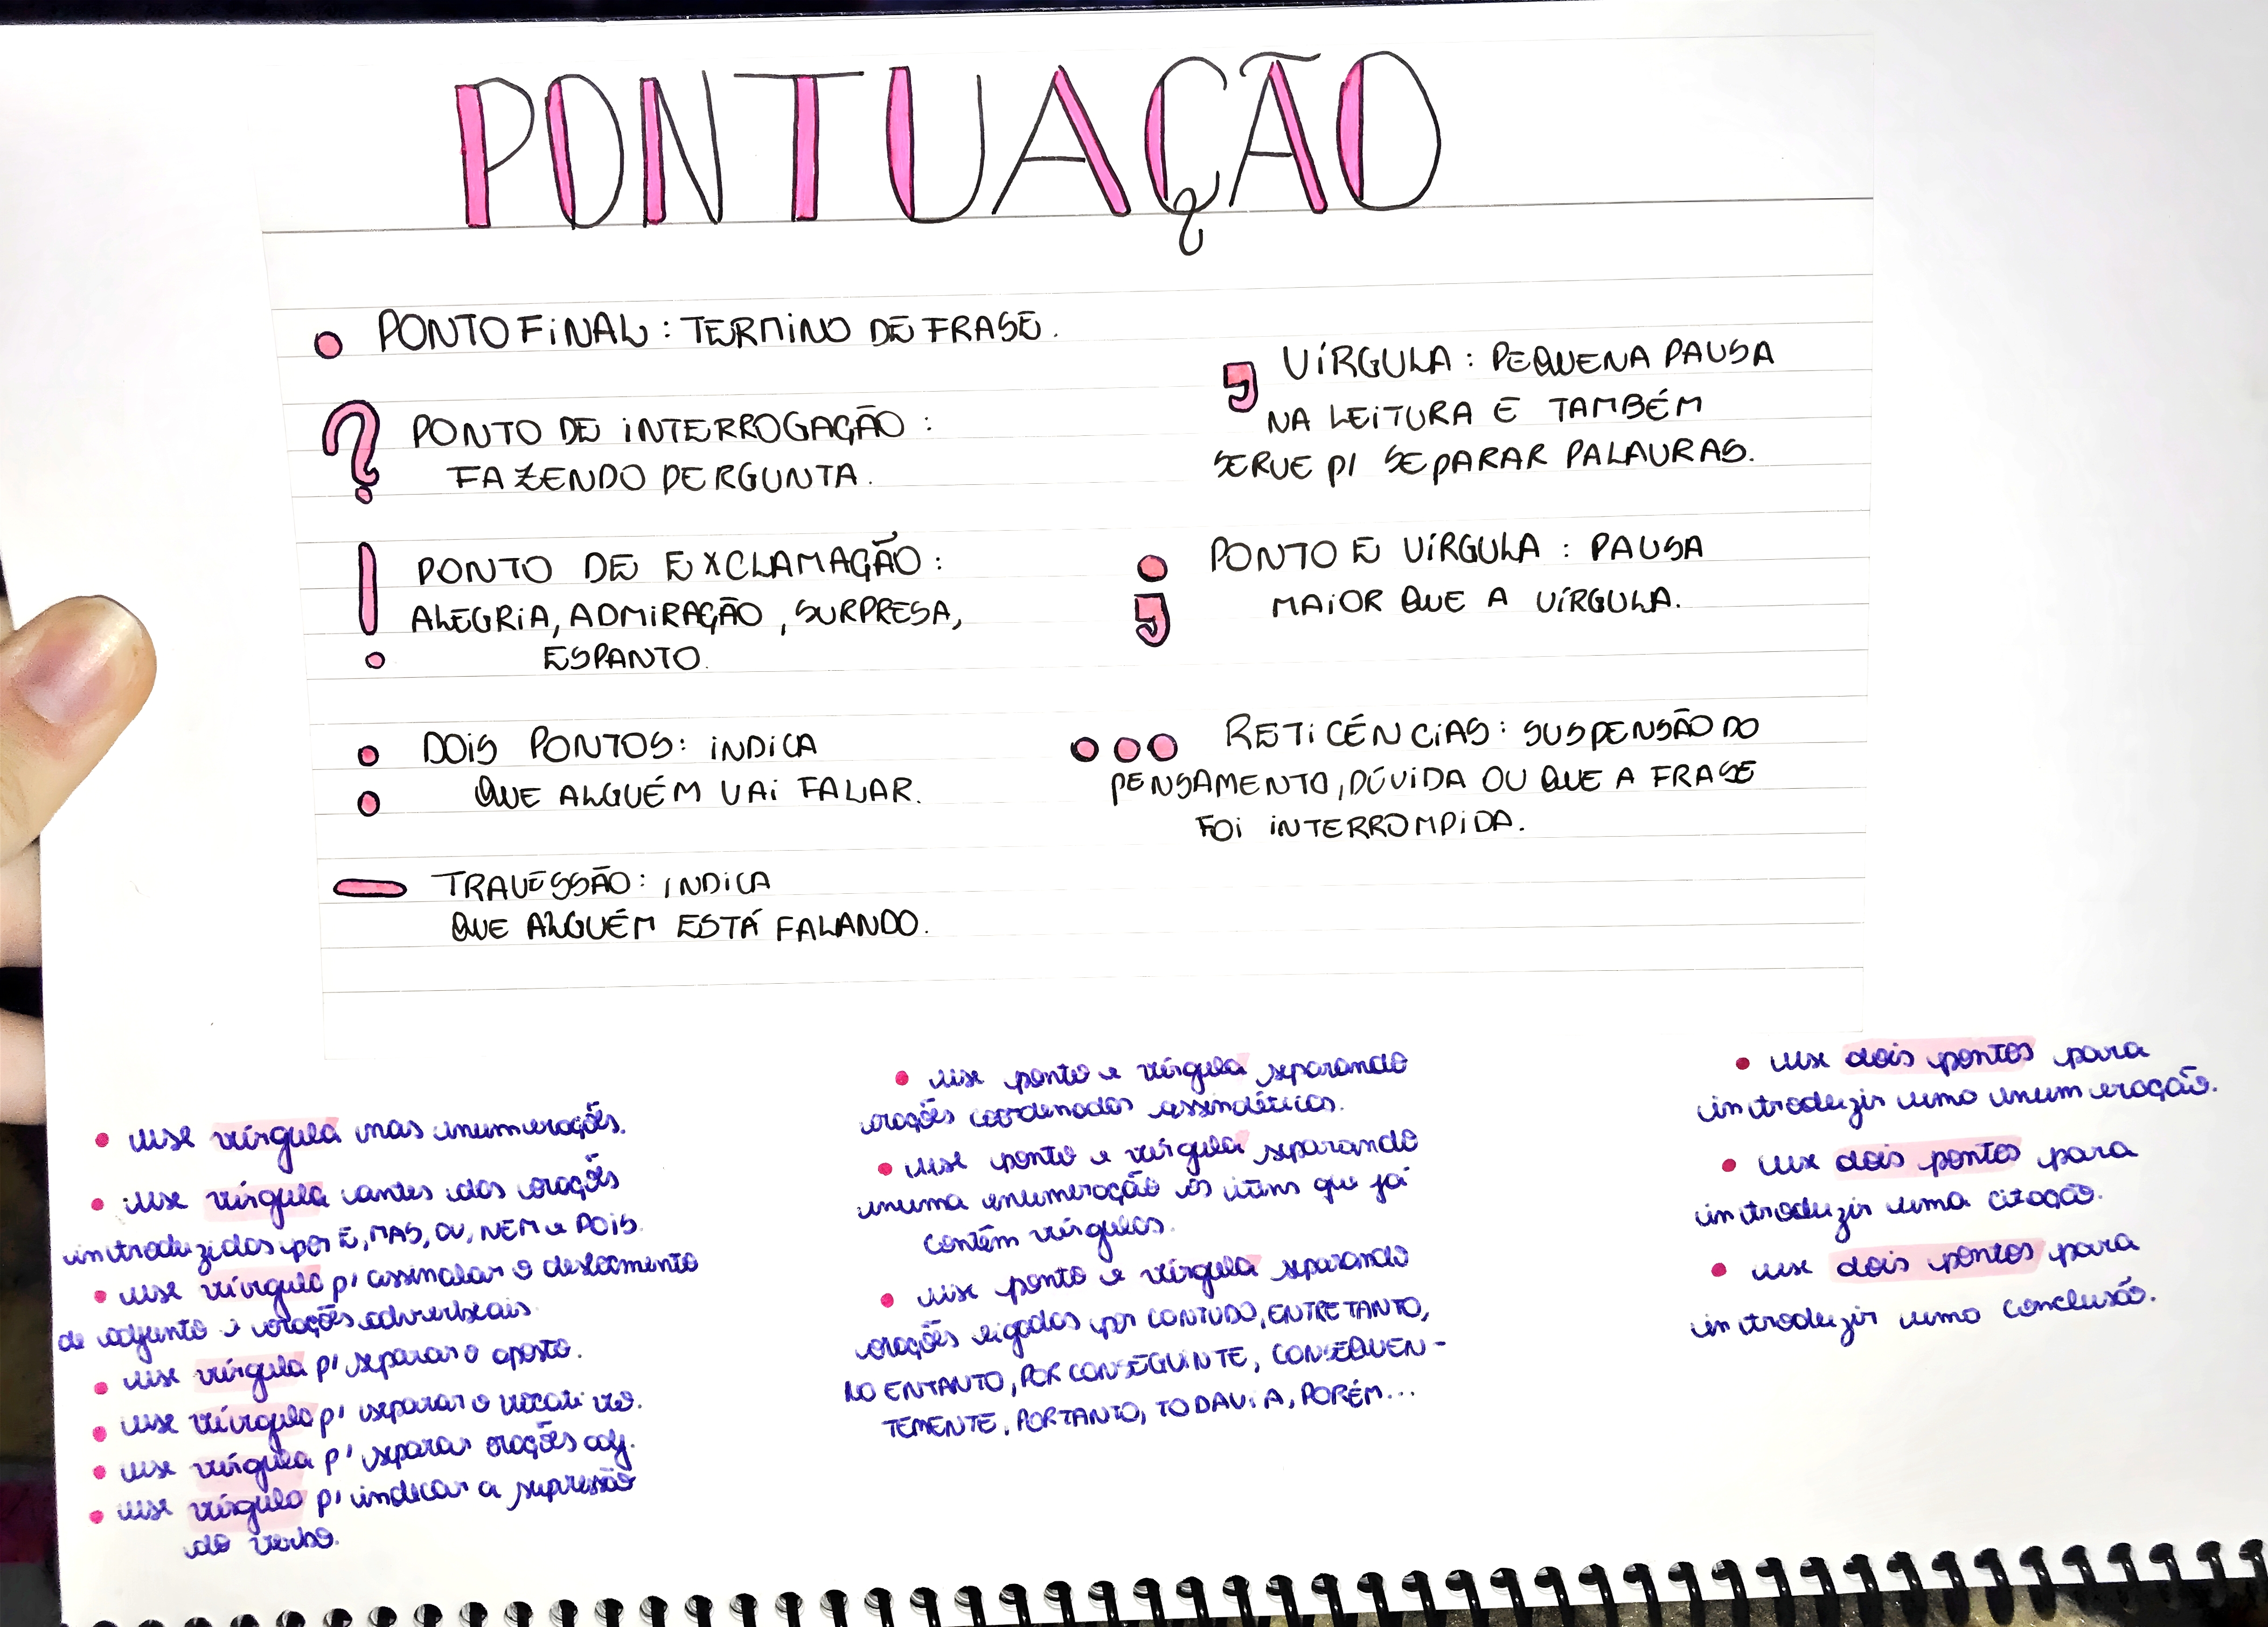 PONTUAÇÃO
PONTO FINAL: TERMINO DE FRASE.
? PONTO DE INTERROGAÇÃO:
FAZENDO PERGUNTA.
! PONTO DE EXCLAMAÇÃO:
ALEGRIA, ADMIRAÇÃO, SURPRESA,
ESPANTO.
: DOIS PONTOS: INDICA
QUE ALGUÉM VAI FALAR.
— TRAVESSÃO: INDICA
QUE ALGUÉM ESTÁ FALANDO.
, VÍRGULA: PEQUENA PAUSA
NA LEITURA E TAMBÉM
SERVE P/ SEPARAR PALAVRAS.
; PONTO E VÍRGULA: PAUSA
MAIOR QUE A VÍRGULA.
... RETICÉNCIAS: SUSPENSÃO DO
PENSAMENTO, DÚVIDA OU QUE A FRASE
FOI INTERROMPIDA.
• use vírgula nas enumerações.
• use vírgula antes das orações
introduzidas por E, MAS, OU, NEM e POIS.
• use vírgula p/ assinalar o deslocmento
de adjunto e orações adverbiais
• use vírgula p/ separar o aposto.
• use vírgula p/ separar o vocativo.
• use vírgula p/ separar orações adj.
• use vírgula p/ indicar a supressão
do verbo.
• use ponto e vírgula separando
orações coordenadas assindéticas.
• use ponto e vírgula separando
numa enumeração os itens que já
contêm vírgulas.
• use ponto e vírgula separando
orações ligadas por CONTUDO, ENTRETANTO,
NO ENTANTO, POR CONSEGUINTE, CONSEQUEN-
TEMENTE, PORTANTO, TODAVIA, PORÉM...
• use dois pontos para
introduzir uma enumeração.
• use dois pontos para
introduzir uma citação.
• use dois pontos para
introduzir uma conclusão.